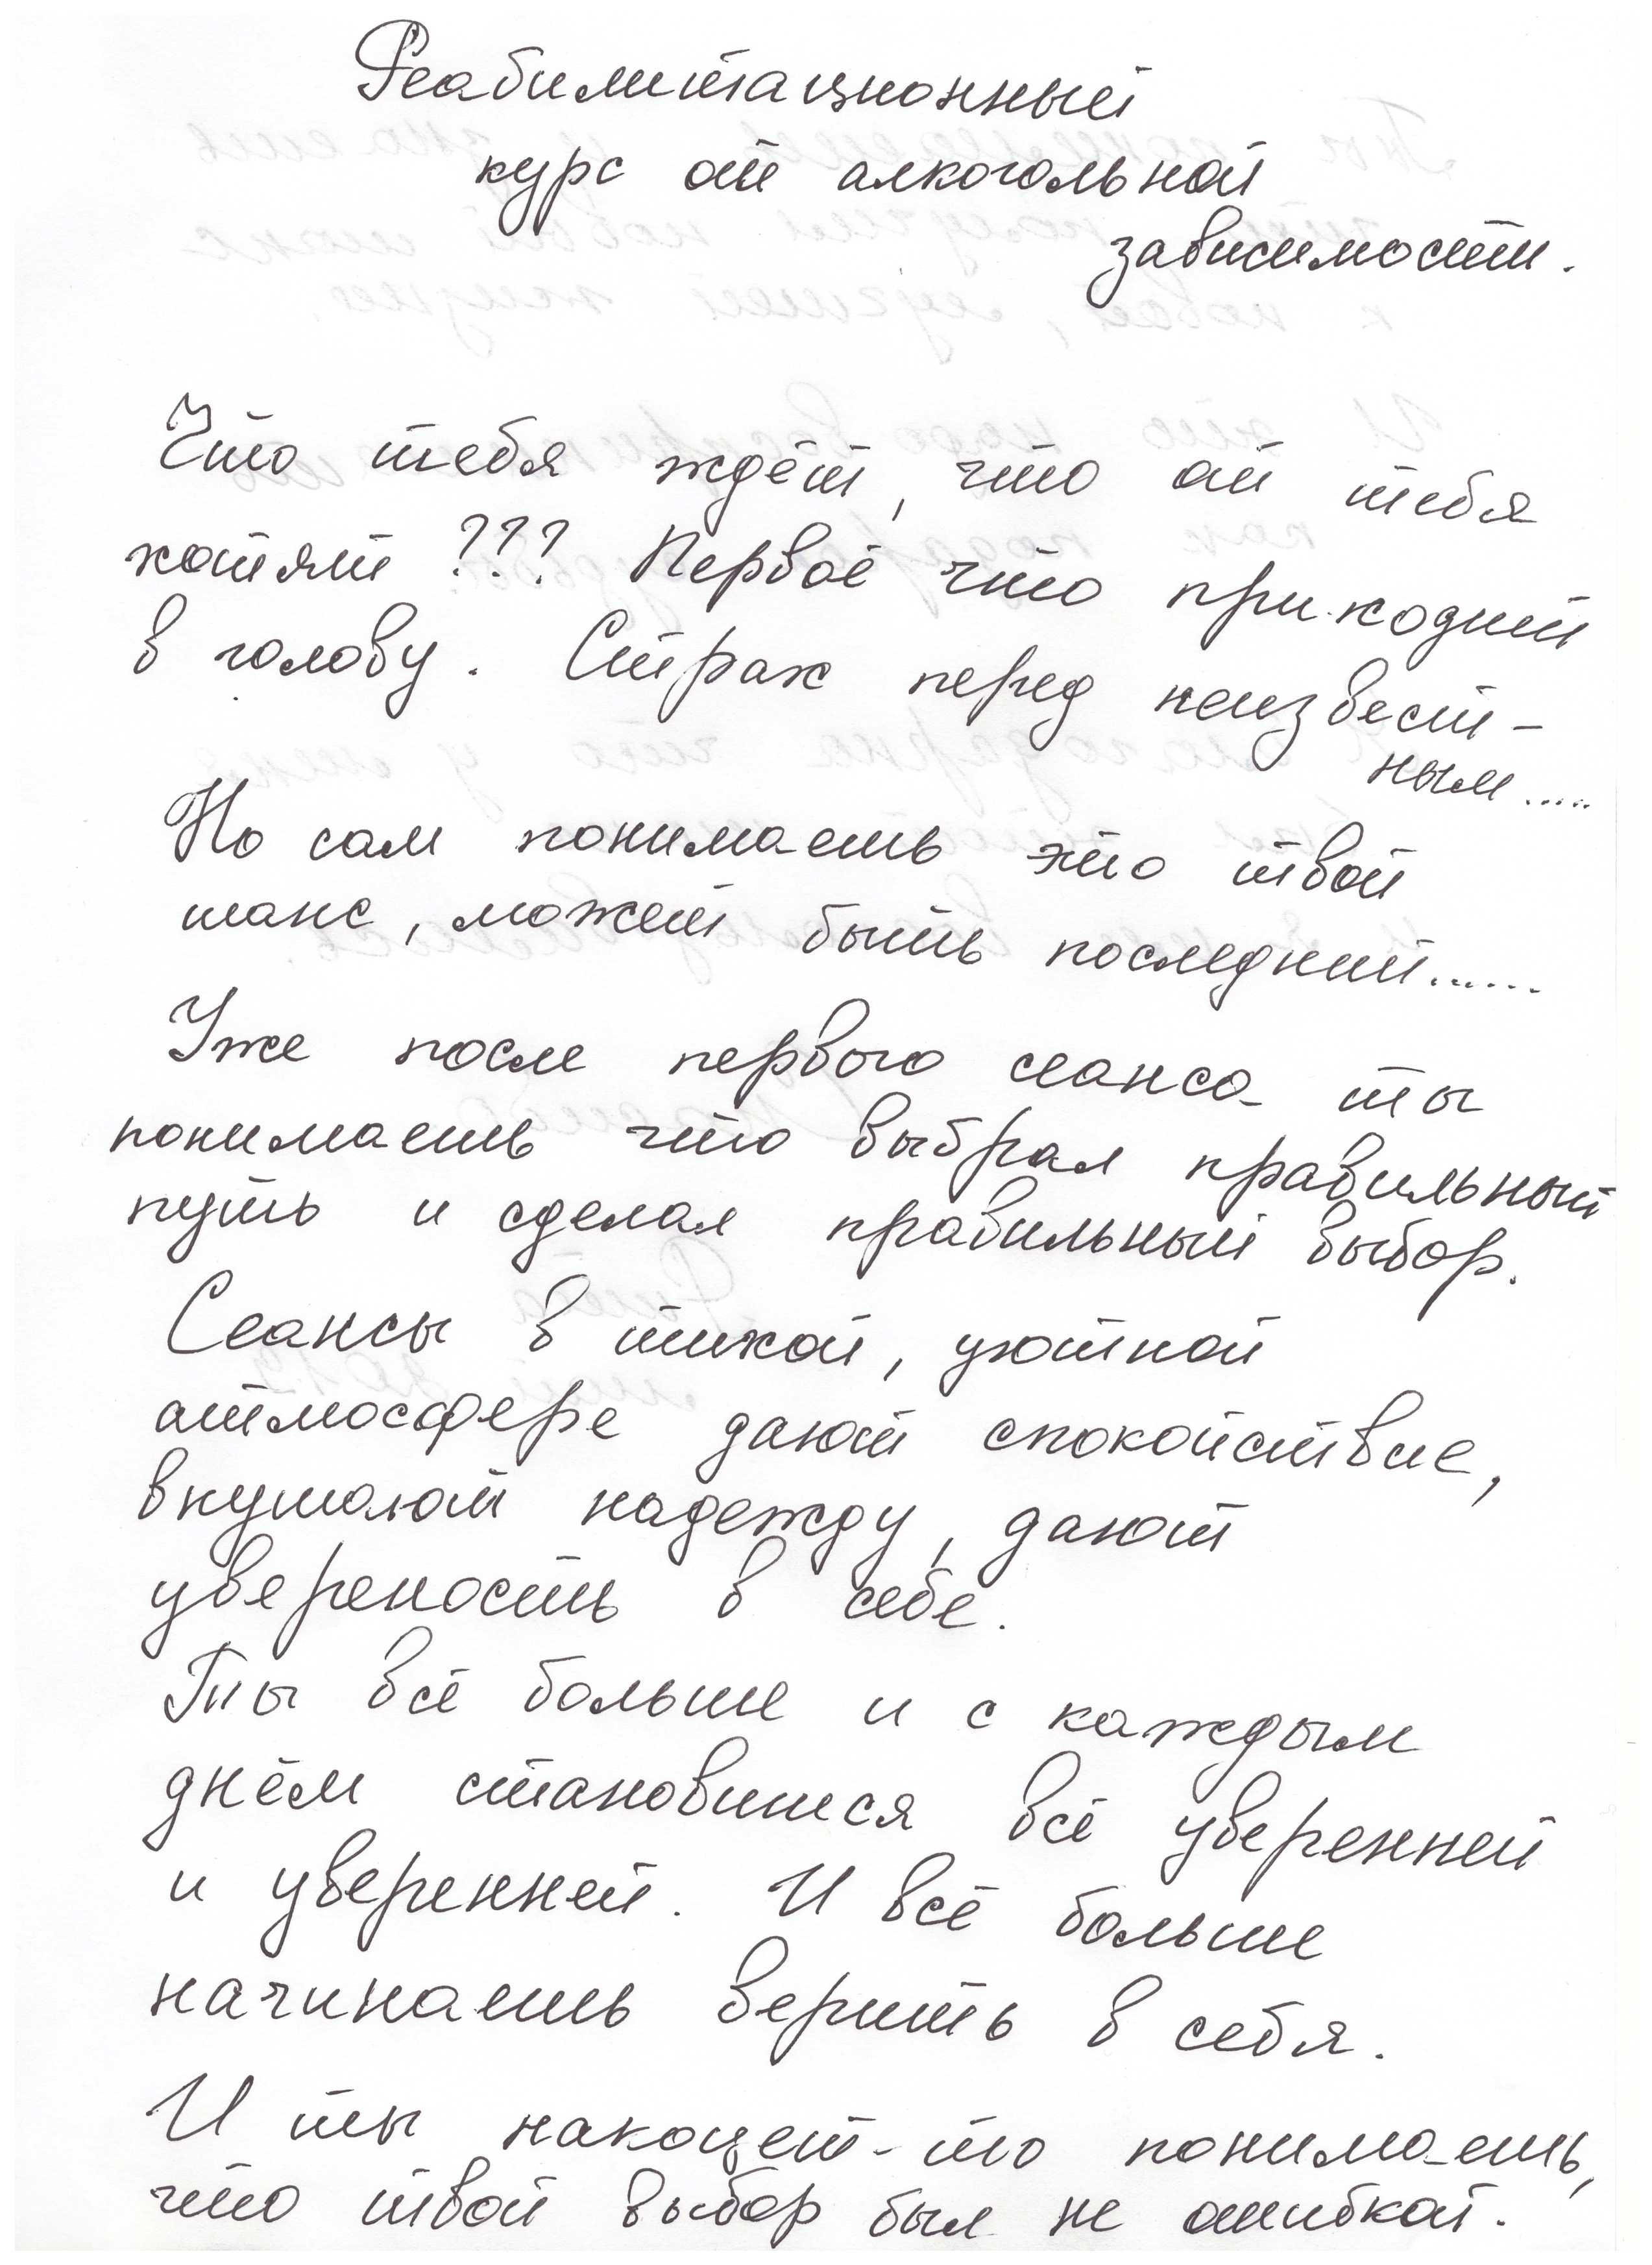 Реабилитационный
курс от алкогольной
зависимости.
Что тебя ждёт, что от тебя
хотят ??? Первоё что приходит
в голову. Страх перед неизвест-
ным.....
Но сам понимаешь это твой
шанс, может быть последний......
Уже после первого сеанса ты
понимаешь что выбрал правильный
путь и сделал правильный выбор.
Сеансы в тихой, уютной
атмосфере дают спокойствие,
внушают надежду, дают
увереность в себе.
Ты всё больше и с каждым
днём становишся всё уверенней
и уверенней. И всё больше
начинаешь верить в себя.
И ты накоцет-то понимаешь,
что твой выбор был не ошибкой.